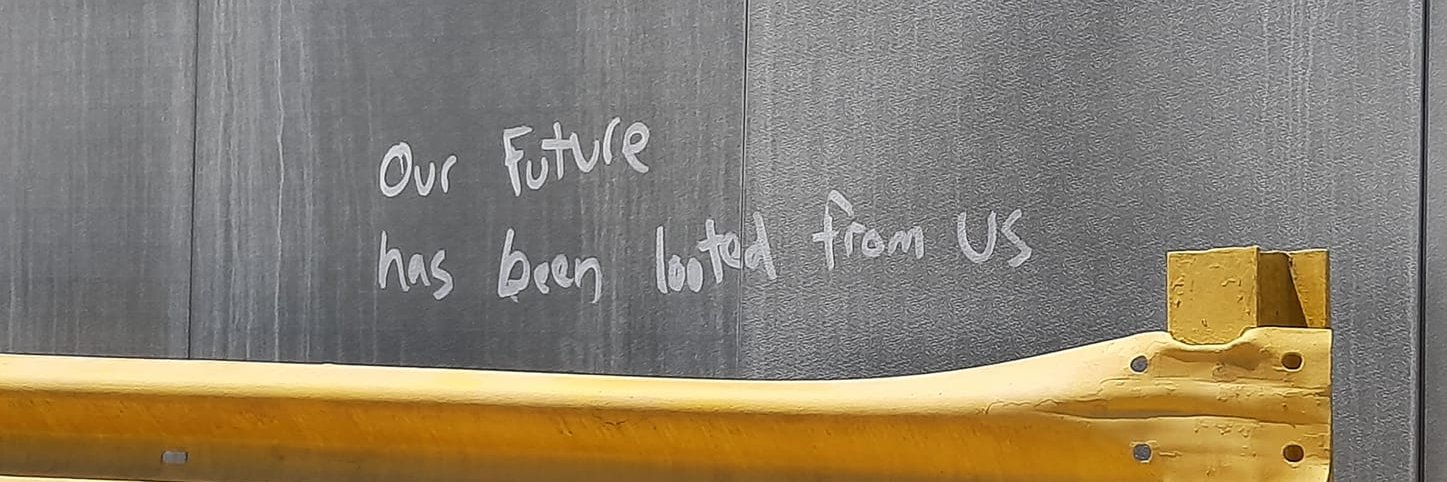 Our Future
has been looted from us